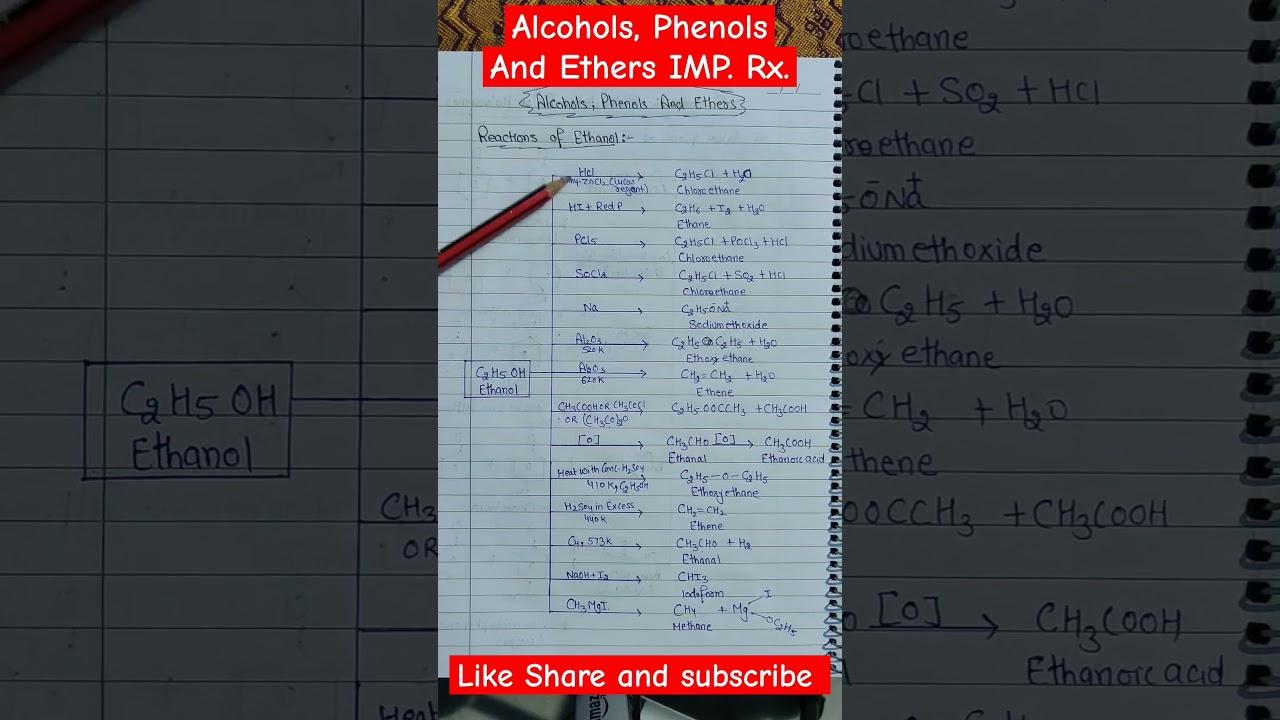 Alcohols, Phenols
And Ethers IMP. Rx.
Alcohols, Phenols And Ethers
Reactions of Ethanol:-
HCl
ZnCl2 (Lucas regant) C2H5Cl + H2O
Chloroethane
HI + Red P C2H6 + I2 + H2O
Ethane
PCl5 C2H5Cl + POCl3 + HCl
Chloroethane
SOCl2 C2H5Cl + SO2 + HCl
Chloroethane
Na C2H5ŌNa+
Sodiumethoxide
Al2O3 520K C2H5 O C2H5 + H2O
Ethoxy ethane
C2H5 OH
Ethanol
Al2O3 620K CH2=CH2 + H2O
Ethene
CH3COOH OR CH3COCl C2H5 OOCCH3 + CH3COOH
OR (CH3CO)2O
[O] CH3CHO [O] CH3COOH
Ethanal Ethanoic acid
Heat with Conc. H2SO4 C2H5-O-C2H5
410K, C2H5OH Ethoxyethane
H2SO4 in Excess CH2=CH2
440K Ethene
Cu, 573K CH3CHO + H2
Ethanal
NaOH+I2 CHI3
Iodoform
CH3MgI CH4 + Mg I OC2H5
Methane
Like Share and subscribe
C2H5 OH
Ethanol
CH3
OR
Heat
oethane
Cl + SO2 + HCl
roethane
ŌNa+
diumethoxide
C2H5 + H2O
oxy ethane
=CH2 + H2O
thene
OOCCH3 + CH3COOH
[O] CH3COOH
Ethanoic acid